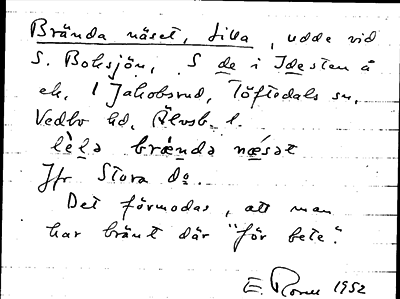 Brända näset, Lilla, udde vid
S. Boksjön, S de i Idesten å
ek, 1 Jakobsrud, Töftedals sn,
Vedbo hd, Älvsb. l.
lèla brændə næ̀sət
Jfr Stora do.
Det förmodas, att man
har bränt där "för bete".
E. 1952